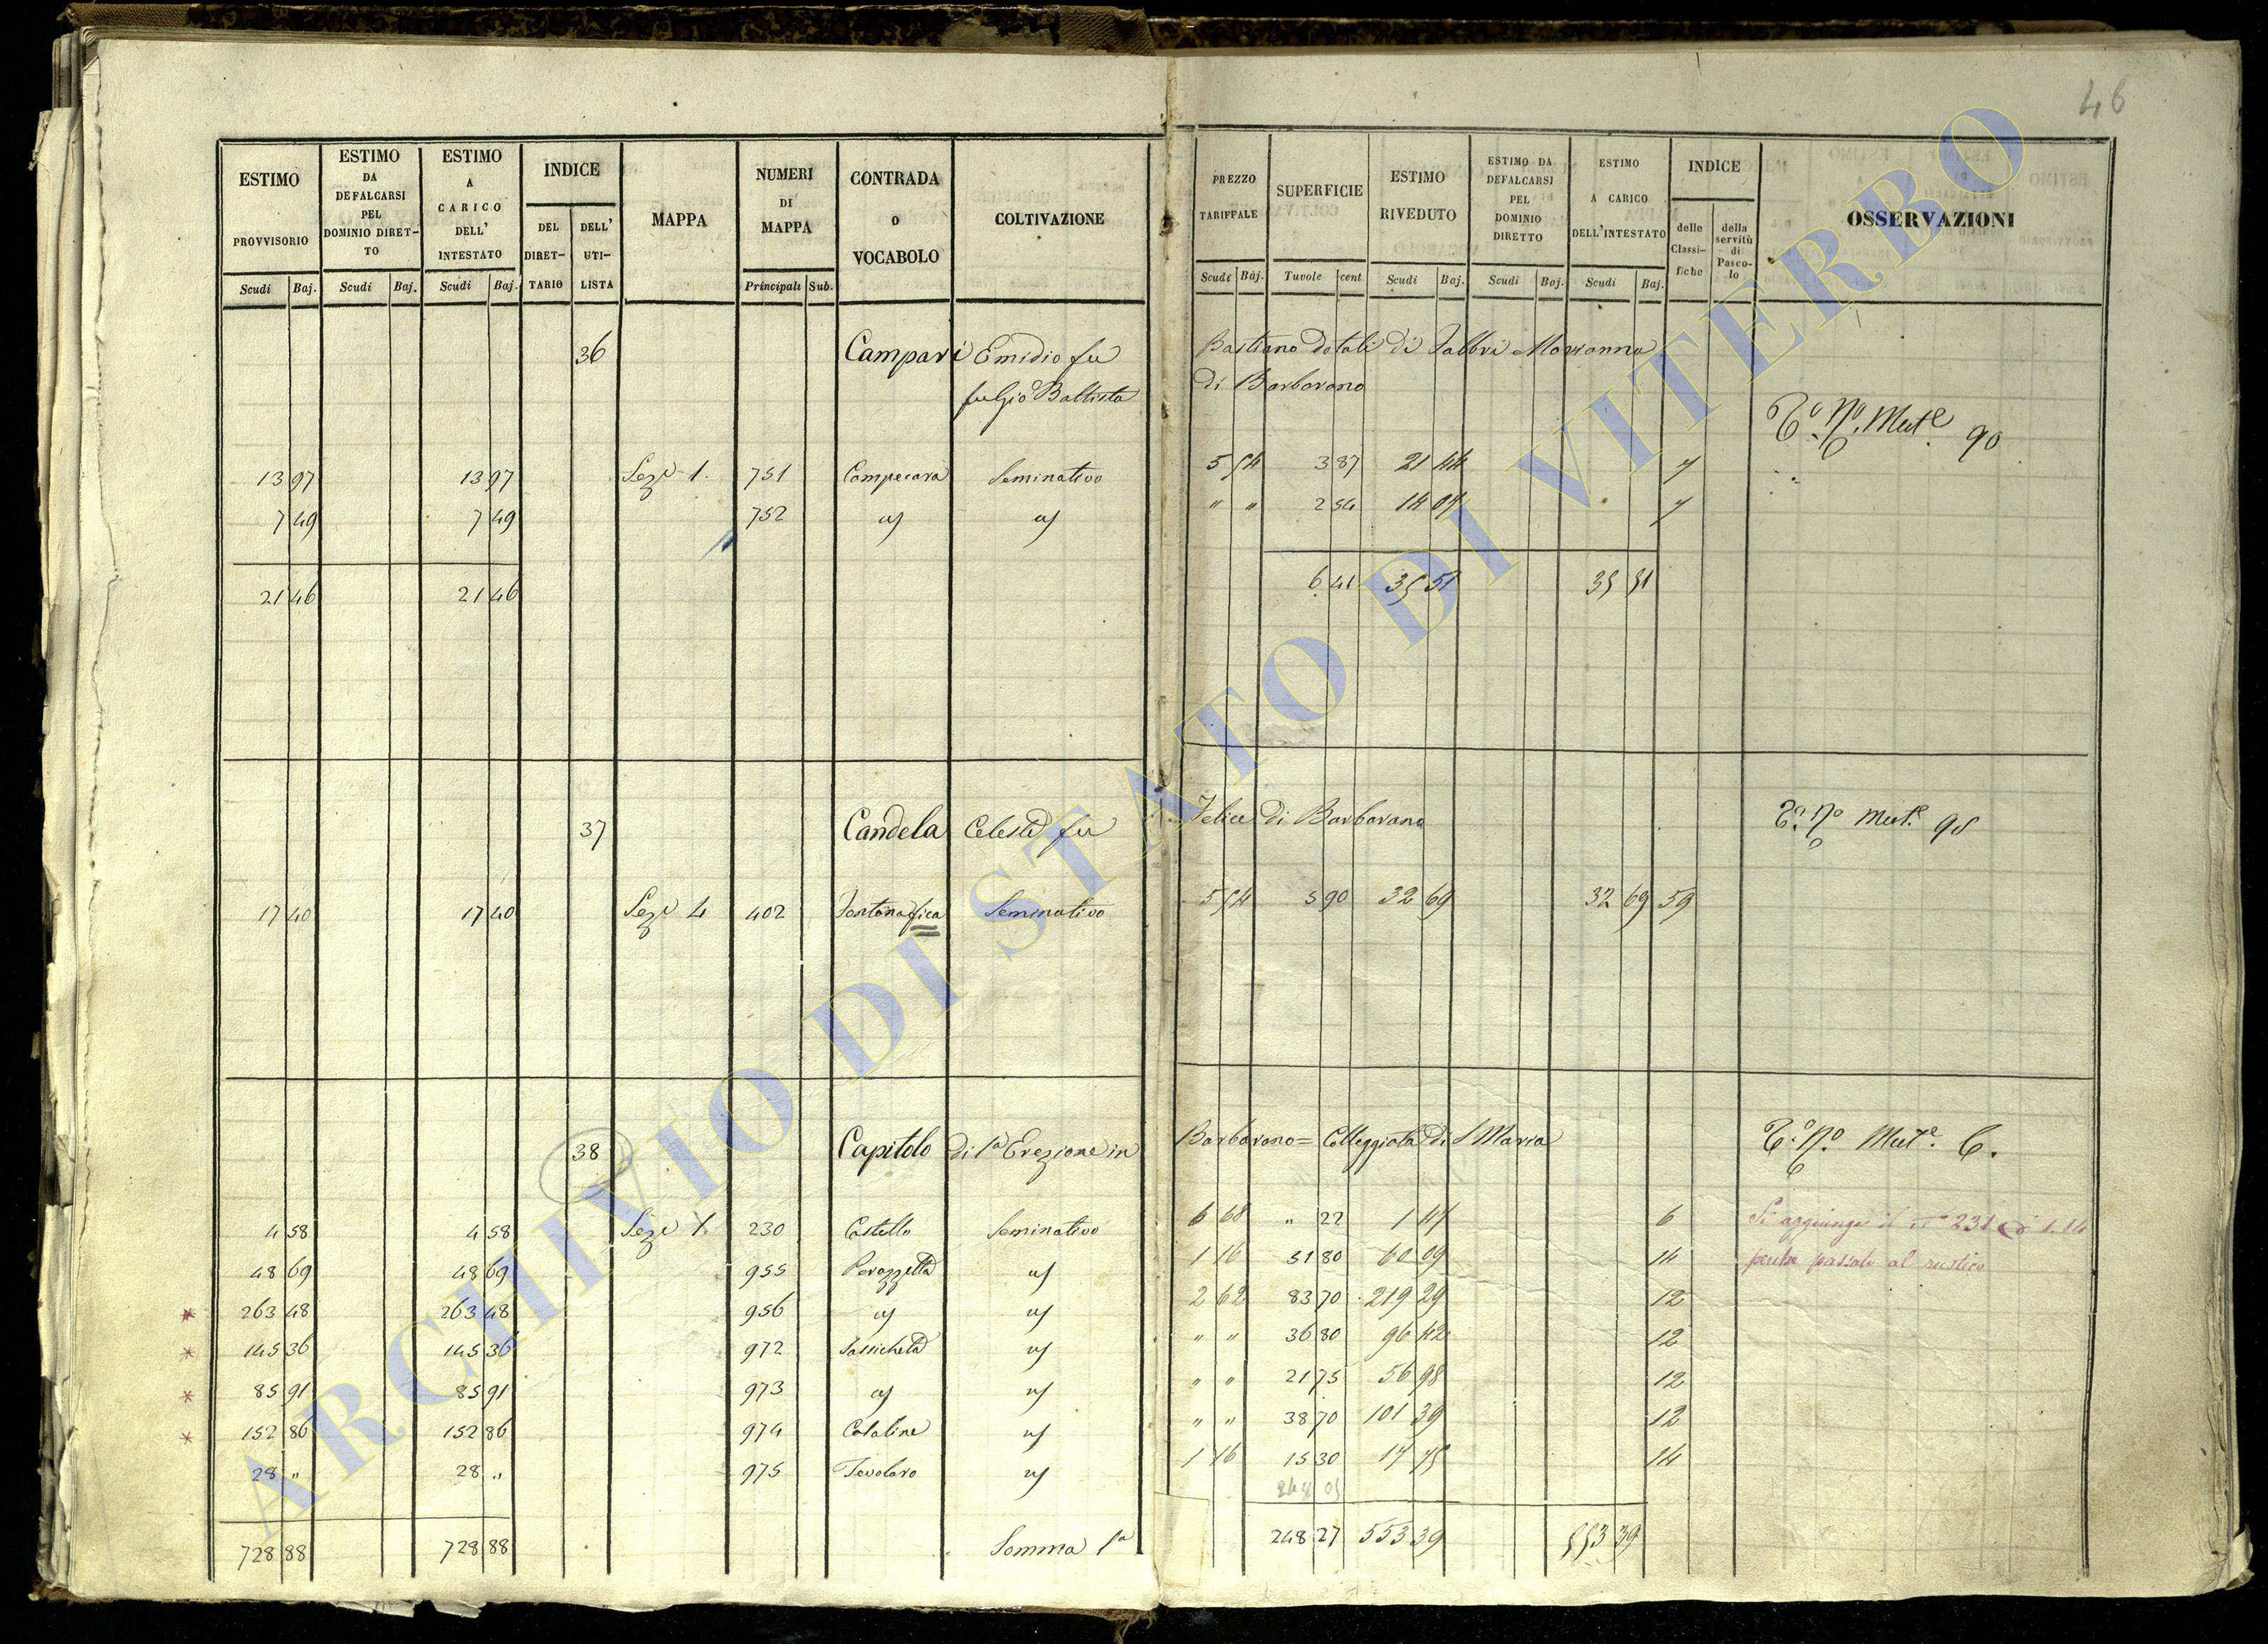 46
ESTIMO PROVVISORIO
ESTIMO DA DEFALCARSI PEL DOMINIO DIRET-TO
ESTIMO A CARICO DELL' INTESTATO
INDICE
DEL DIRET-TARIO
DELL' UTI-LISTA
MAPPA
NUMERI DI MAPPA
CONTRADA O VOCABOLO
COLTIVAZIONE
PREZZO TARIFFALE
SUPERFICIE
ESTIMO RIVEDUTO
ESTIMO DA DEFALCARSI PEL DOMINIO DIRETTO
ESTIMO A CARICO DELL'INTESTATO
INDICE
delle Classi-fiche
della servitù di Pasco-lo
OSSERVAZIONI
Scudi Baj. Scudi Baj. Scudi Baj. Principali Sub. Scudi Baj. Tavole cent. Scudi Baj. Scudi Baj. Scudi Baj.
36 Campari Emidio fu Bastiano dotali di Fabbri Marianna
fu Gio Battista di Barbarano
Mut.e 90
13 97 13 97 Sez.e 1. 751 Campecora Seminativo 5 54 3 87 21 44 7
7 49 7 49 752 " " 2 54 14 07 7
21 46 21 46 6 41 35 51 35 51
37 Candela Celeste fu Felice di Barbarano Mut.e 98
17 40 17 40 Sez.e 4 402 Fontanafica Seminativo 5 54 5 90 32 69 32 69 59
38 Capitolo di 1a Erezione in Barbarano = Colleggiata di S Maria Mut.e 6.
4 58 4 58 Sez.e 1. 230 Castello Seminativo 6 68 " 22 1 47 6 Si aggiunge il n° 231 di 1.14
48 69 48 69 955 Perazzetta 1 16 51 80 60 09 14 perche passato al rustico
* 263 48 263 48 956 2 62 83 70 219 29 12
* 145 36 145 36 972 Sassicheta " " 36 80 96 42 12
* 85 91 85 91 973 " " 21 75 56 98 12
* 152 86 152 86 974 Cataline " " 38 70 101 39 12
28 " 28 " 975 Tevolaro 1 16 15 30 17 75 14
728 88 728 88 Somma 1a 248 27 553 39 553 39
ARCHIVIO DI STATO DI VITERBO